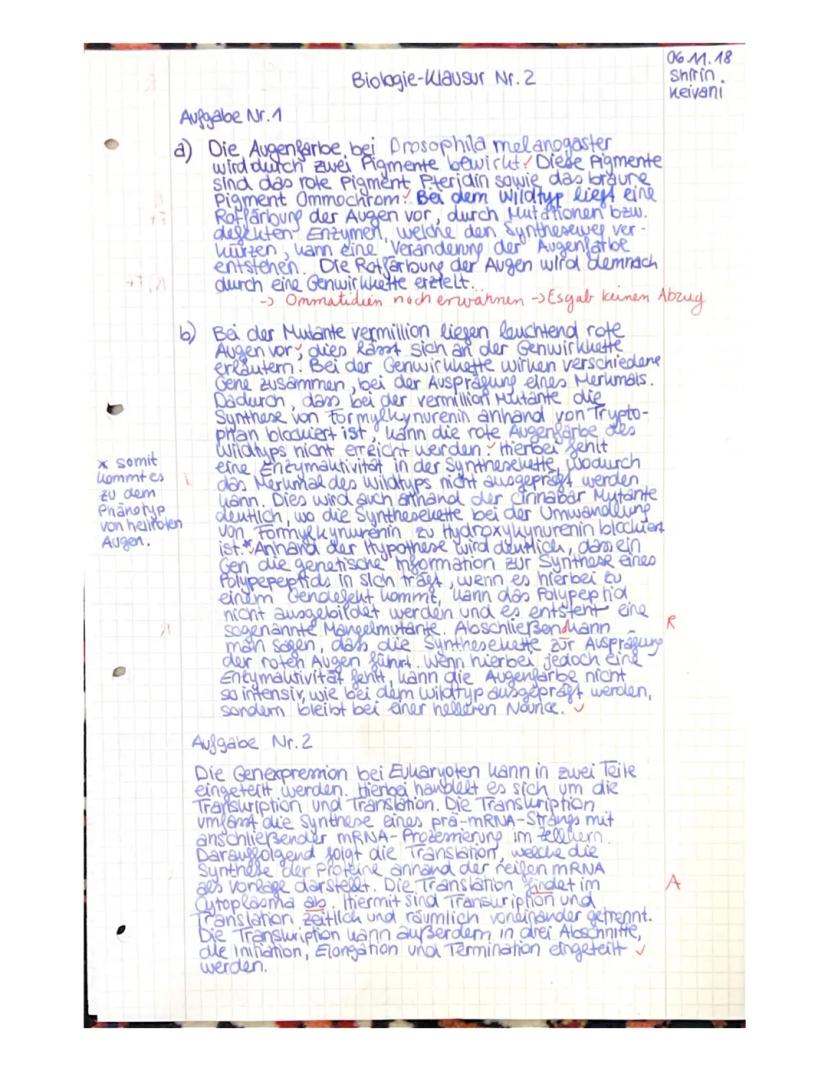 06.11.18
Shirin
Keivani
Biologie-Klausur Nr. 2
Aufgabe Nr. 1
a) Die Augenfarbe bei Drosophila melanogaster
wird durch zwei Pigmente bewirkt. Diese Pigmente
sind das rote Pigment Pteridin sowie das braune
Pigment Ommochrom. Bei dem Wildtyp liegt eine
Rotfärbung der Augen vor, durch Mutationen bzw.
defekten Enzymen, welche den Syntheseweg ver-
kürzen, kann eine Veränderung der Augenfarbe
entstehen. Die Rotfärbung der Augen wird demnach
durch eine Genwirkkette erzielt.
-> Ommatidien noch erwähnen -> Es gab keinen Abzug
b) Bei der Mutante vermillion liegen leuchtend rote
Augen vor, dies lässt sich an der Genwirkkette
erläutern. Bei der Genwirkkette wirken verschiedene
Gene zusammen, bei der Ausprägung eines Merkmals.
Dadurch, dass bei der vermillion Mutante die
Synthese von Formylkynurenin anhand von Trypto-
phan blockiert ist, kann die rote Augenfarbe des
Wildtyps nicht erreicht werden. Hierbei fehlt
eine Enzymaktivität in der Synthesekette, wodurch
das Merkmal des Wildtyps nicht ausgeprägt werden
kann. Dies wird auch anhand der cinnabar Mutante
deutlich, wo die Synthesekette bei der Umwandlung
von Formylkynurenin zu Hydroxykynurenin blockiert
ist.* Anhand der Hypothese wird deutlich, dass ein
Gen die genetische Information zur Synthese eines
Polypepeptids in sich trägt, wenn es hierbei zu
einem Gendefekt kommt, kann das Polypeptid
nicht ausgebildet werden und es entsteht eine
sogenannte Mangelmutante. Abschließend kann
R
man sagen, dass die Synthesekette zur Ausprägung
der roten Augen führt. Wenn hierbei jedoch eine
Enzymaktivität fehlt, kann die Augenfarbe nicht
so intensiv, wie bei dem Wildtyp ausgeprägt werden,
sondern bleibt bei einer helleren Nounce.
x somit
kommt es
zu dem
Phänotyp
von hellroten
Augen.
Aufgabe Nr. 2
Die Genexpression bei Eukaryoten kann in zwei Teile
eingeteilt werden. Hierbei handelt es sich um die
Transkription und Translation. Die Transkription
umfasst die Synthese eines prä-mRNA-Strangs mit
anschließender mRNA-Prozessierung im Zellkern.
Darauffolgend folgt die Translation, welche die
Synthese der Proteine anhand der reifen mRNA
als Vorlage darstellt. Die Translation findet im
A
Cytoplasma ab. Hiermit sind Transkription und
Translation zeitlich und räumlich voneinander getrennt.
Die Transkription kann außerdem in drei Abschnitte,
die Initiation, Elongation und Termination eingeteilt
werden.